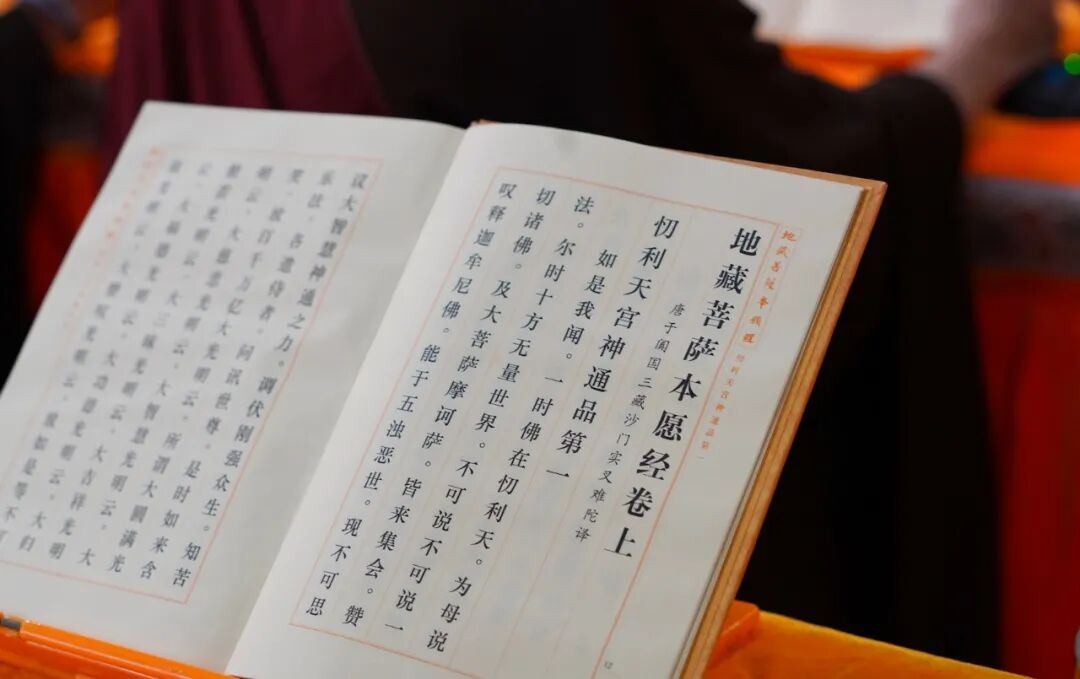 地藏菩萨本愿经 忉利天宫神通品第一
地藏菩萨本愿经卷上
唐于阗国三藏沙门实叉难陀译
忉利天宫神通品第一
如是我闻。一时佛在忉利天。为母说
法。尔时十方无量世界。不可说不可说一
切诸佛。及大菩萨摩诃萨。皆来集会。赞
叹释迦牟尼佛。能于五浊恶世。现不可思
12
议大智慧神通之力。调伏刚强众生。知苦
乐法。各遣侍者。问讯世尊。是时如来含
笑。放百千万亿大光明云。所谓大圆满光
明云。大慈悲光明云。大智慧光明云。大
般若光明云。大三昧光明云。大吉祥光明
云。大福德光明云。大功德光明云。大归
依光明云。大赞叹光明云。放如是等不可